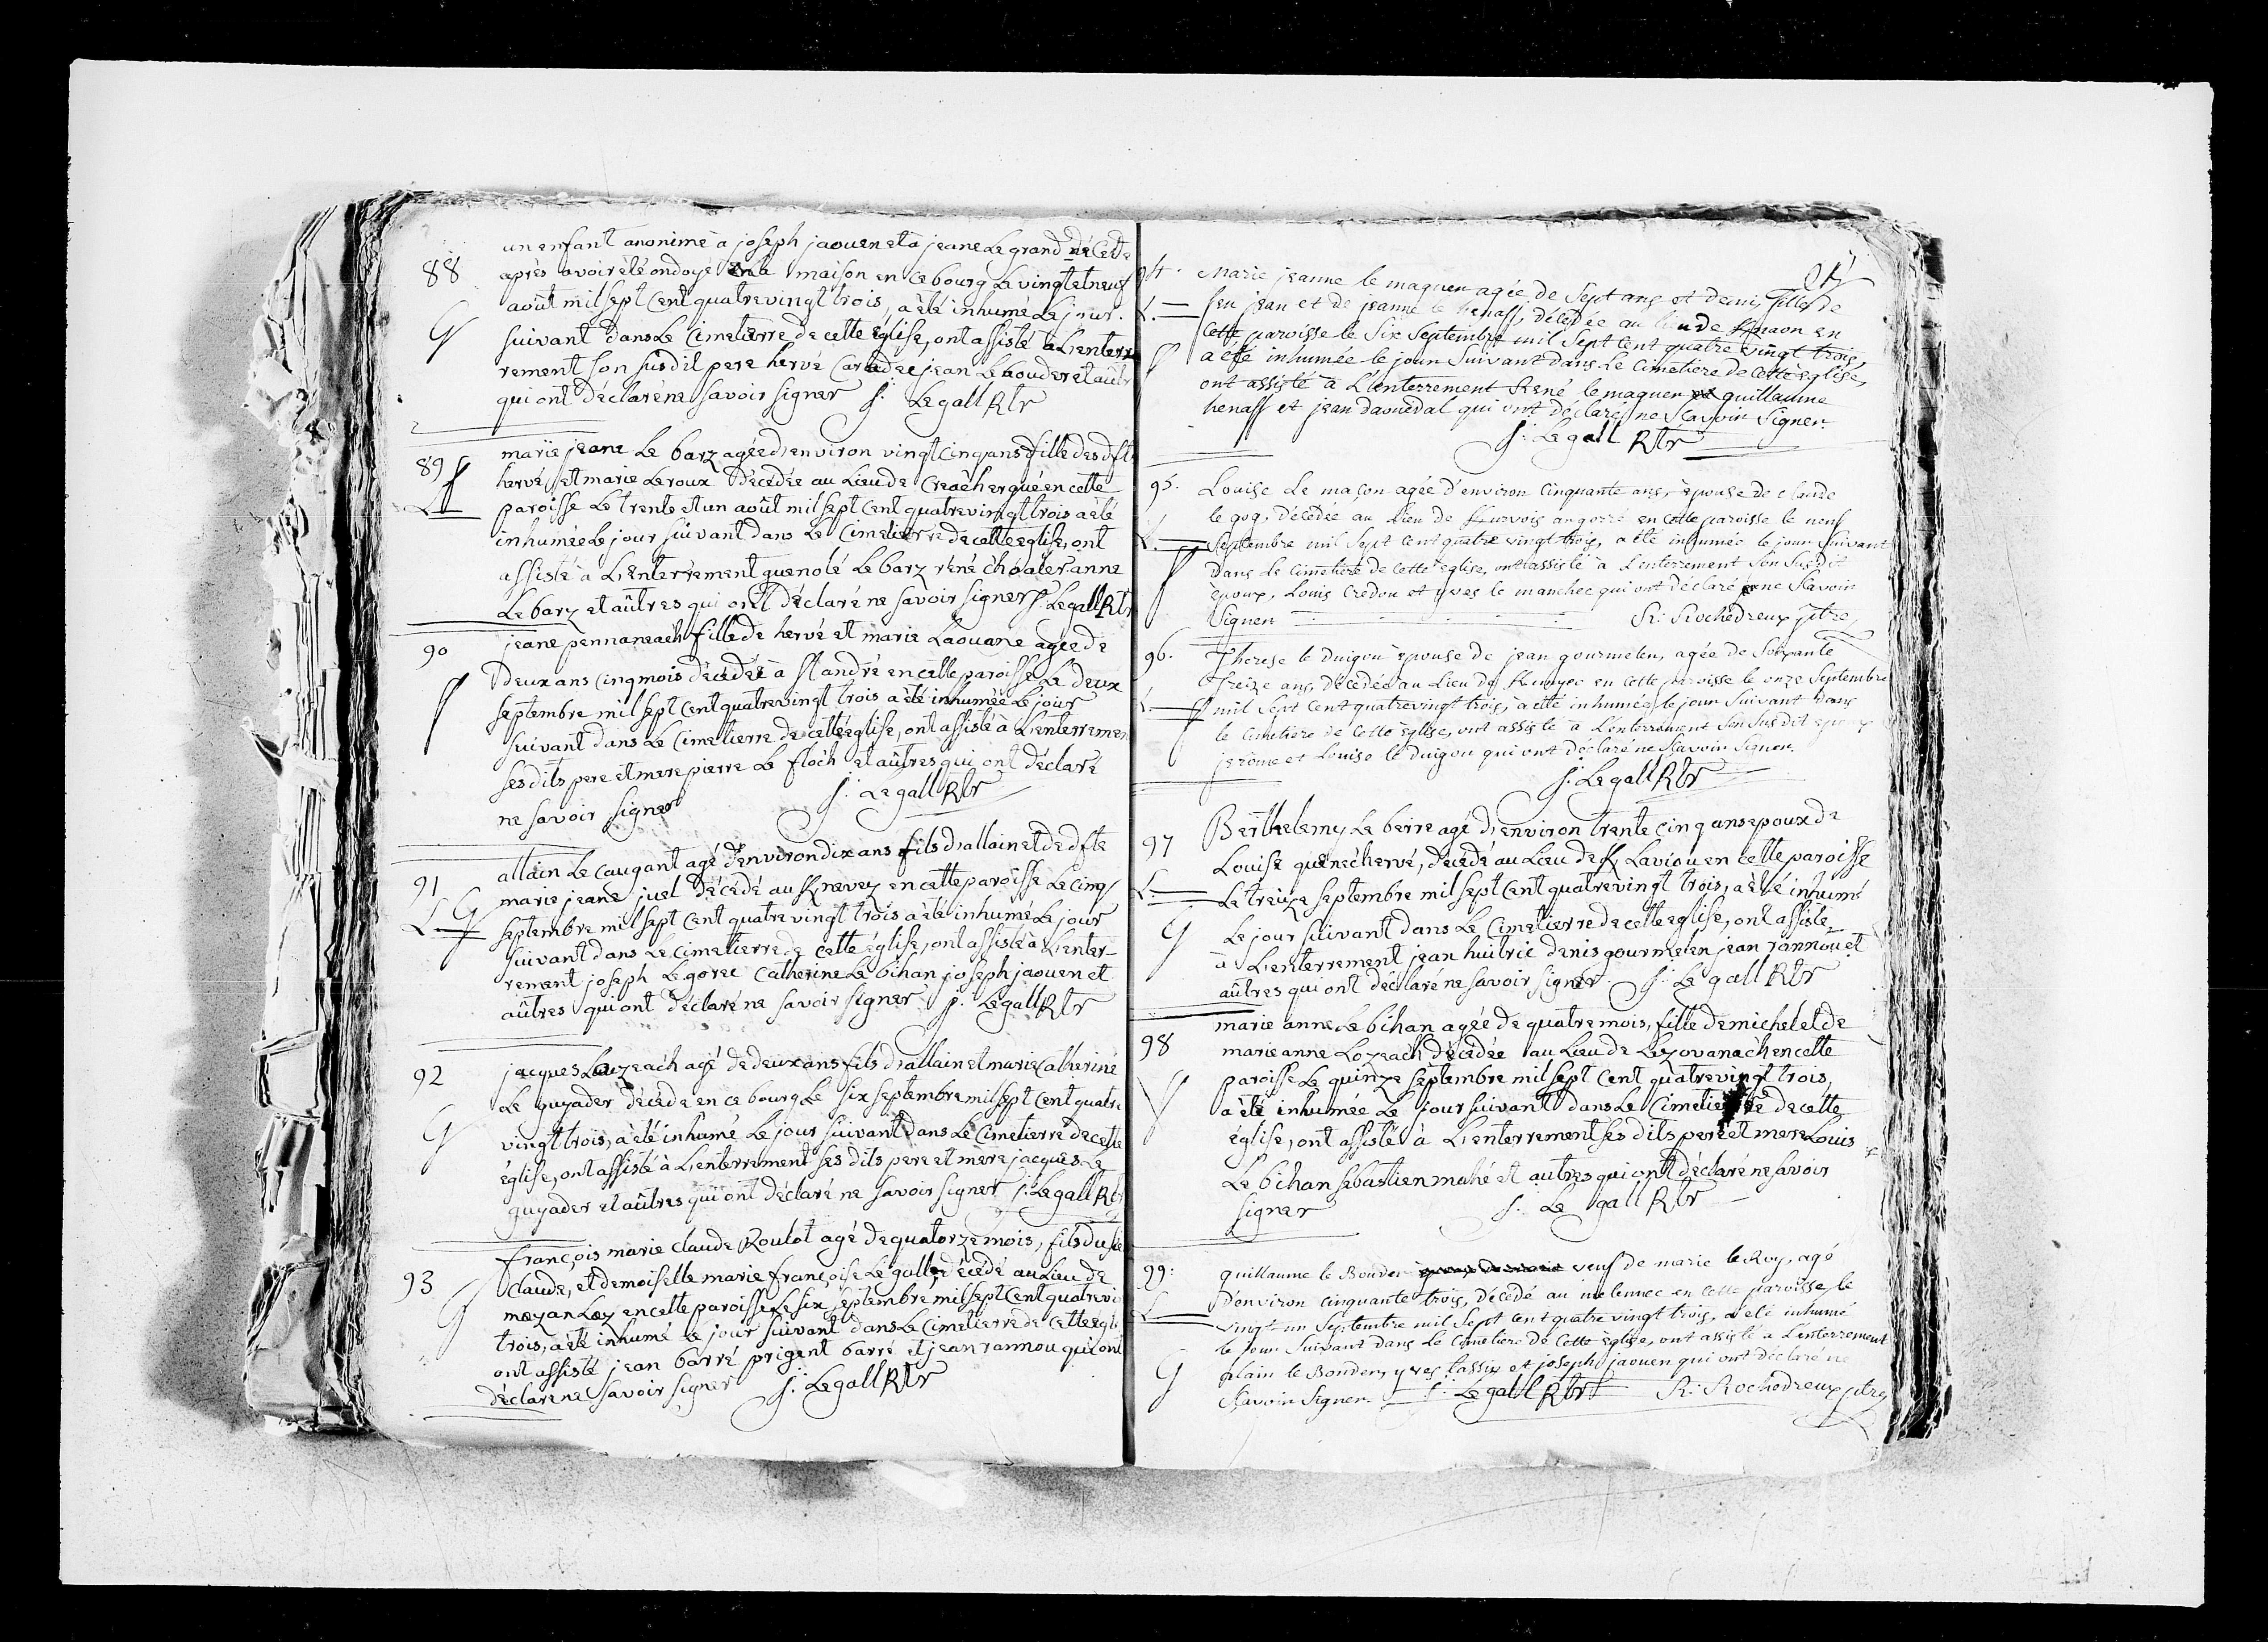 88
un enfant anonime à joseph jaouen et à jeane Le grand décédé
après avoir été ondoyé en la maison en ce bourg Le vingt et neuf
août mil sept Cent quatre vingt trois, a été inhumé Le jour.
suivant dans Le Cimetierre de cette Eglise, ont assisté à L'enter
rement son susdit pere hervé Caradec jean Le bouder et aûtr
qui ont déclaré ne savoir signer f: Le gall Rtr
89
marie jeane Le barz agée d'environ vingt Cinq ans fille des dfts
hervé et marie Le roux décédée au Lieu de Creac'hergué en cette
paroisse Le trente et un août mil sept Cent quatre vingt trois a été
inhumée Le jour suivant dans Le Cimetierre de cette eglise, ont
assisté à L'Enterrement guenolé Le barz réné anne
Le barz et aûtres qui ont déclaré ne savoir signer f: Le gall Rtr
90
jeane pennaneach fille de hervé et marie Laouane agée de
deux ans Cinq mois décédée à St andré en cette paroisse Le deux
septembre mil sept Cent quatre vingt trois a été inhumée Le jour
suivant dans Le Cimetierre de cette église, ont assisté à L'enterremen
ses dits pere et mere pierre Le floch et aûtres qui ont déclaré
ne savoir signer f: Le gall Rtr
91
allain Le Caugant agé d'environ dix ans fils d'allain et de dfte
marie jeane juel décédé au Knevez en cette paroisse Le cinq
septembre mil sept Cent quatre vingt trois a été inhumé Le jour
suivant dans Le Cimetierre de cette église, ont assisté à L'enter-
rement joseph Le gorec Catherine Le bihan joseph jaouen et
aûtres qui ont déclaré ne savoir signer f: Le gall Rtr
92
jacques Lauzeach agé de deux ans fils d'allain et marie Catherine
Le guyader décédé en ce bourg Le six septembre mil sept Cent quatre
vingt trois, a été inhumé Le jour suivant dans Le Cimetierre de cette
église, ont assisté à L'enterrement ses dits pere et mere jacques Le
guyader et aûtres qui ont déclaré ne savoir signer f: Le gall Rtr
93
françois marie Claude Roulot agé de quatorze mois, fils du
Claude, et demoiselle marie françoise Le gall décédé au Lieu de
en cette paroisse Le six septembre mil sept Cent quatre vi
trois, a été inhumé Le jour suivant dans Le Cimetierre de Cette egl
ont assisté jean barré prigent barré et jean rannou qui ont
déclaré ne savoir signer f: Le gall Rtr
94.
Marie jeanne le maguer agée de Sept ans et demi, fille de
feu jean et de jeanne le henaff, décédée au lieu de en
Cette paroisse le Six Septembre mil Sept Cent quatre vingt trois,
a été inhumée le jour Suivant dans Le Cimetiere de Cette église,
ont assisté à L'enterrement René le maguer guillaume
henaff et jean daouedal qui ont déclaré ne Scavoir Signer.
f: Le gall Rtr
95.
Louise Le maçon agée d'environ Cinquante ans, épouse de claude
le gog, décédée au Lieu de angorré en cette paroisse le neuf
Septembre mil Sept Cent quatre vingt trois, a été inhumée le jour Suivant
dans Le Cimetiere de Cette église, ont assisté à L'enterrement Son Susdit
époux, Louis Credou et yves le manchec qui ont déclaré ne Scavoir
Signer R: Rochedreux ptre
96.
Therese le Duigou épouse de jean gourmelen, agée de Soixante
treize ans, décédée au Lieu de en Cette paroisse le onze Septembre
mil Sept Cent quatre vingt trois, a été inhumée le jour Suivant dans
le Cimetiere de Cette église, ont assisté a L'enterrement Son Susdit époux
jerôme et Louise le duigou qui ont déclaré ne Scavoir Signer.
f: Le gall Rtr
97
Berthelemy Le berre agé d'environ trente Cinq ans epoux de
Louise quenec'hervé, décédé au Lieu de K Laviou en cette paroisse
Le treize septembre mil sept Cent quatre vingt trois, a été inhumé
Le jour suivant dans Le Cimetierre de cette eglise, ont assisté
à L'enterrement jean huitric denis gourmelen jean rannou et
aûtres qui ont déclaré ne savoir signer f: Le gall Rtr
98
marie anne Le bihan agée de quatre mois, fille de michel et de
marie anne Lozeach décédée au Lieu de Lezovanach en cette
paroisse Le quinze septembre mil sept Cent quatre vingt trois,
a été inhumée Le jour suivant dans Le Cimetierre de cette
église, ont assisté à L'enterrement ses dits pere et mere Louis
Le bihan sebastien mahé et autres qui ont déclaré ne savoir
signer f: Le gall Rtr
99:
guillaume le Bouder veuf de marie le Roy, agé
d'environ cinquante trois, décédé au en Cette paroisse, le
vingt-un Septembre mil Sept Cent quatre vingt trois, a été inhumé
le jour Suivant dans Le Cimetiere de Cette église, ont assisté a L'enterrement
alain le Bouder, yves et joseph jaouen qui ont déclaré ne
Scavoir Signer. f: Le gall Rtr R: Rochedreux ptre